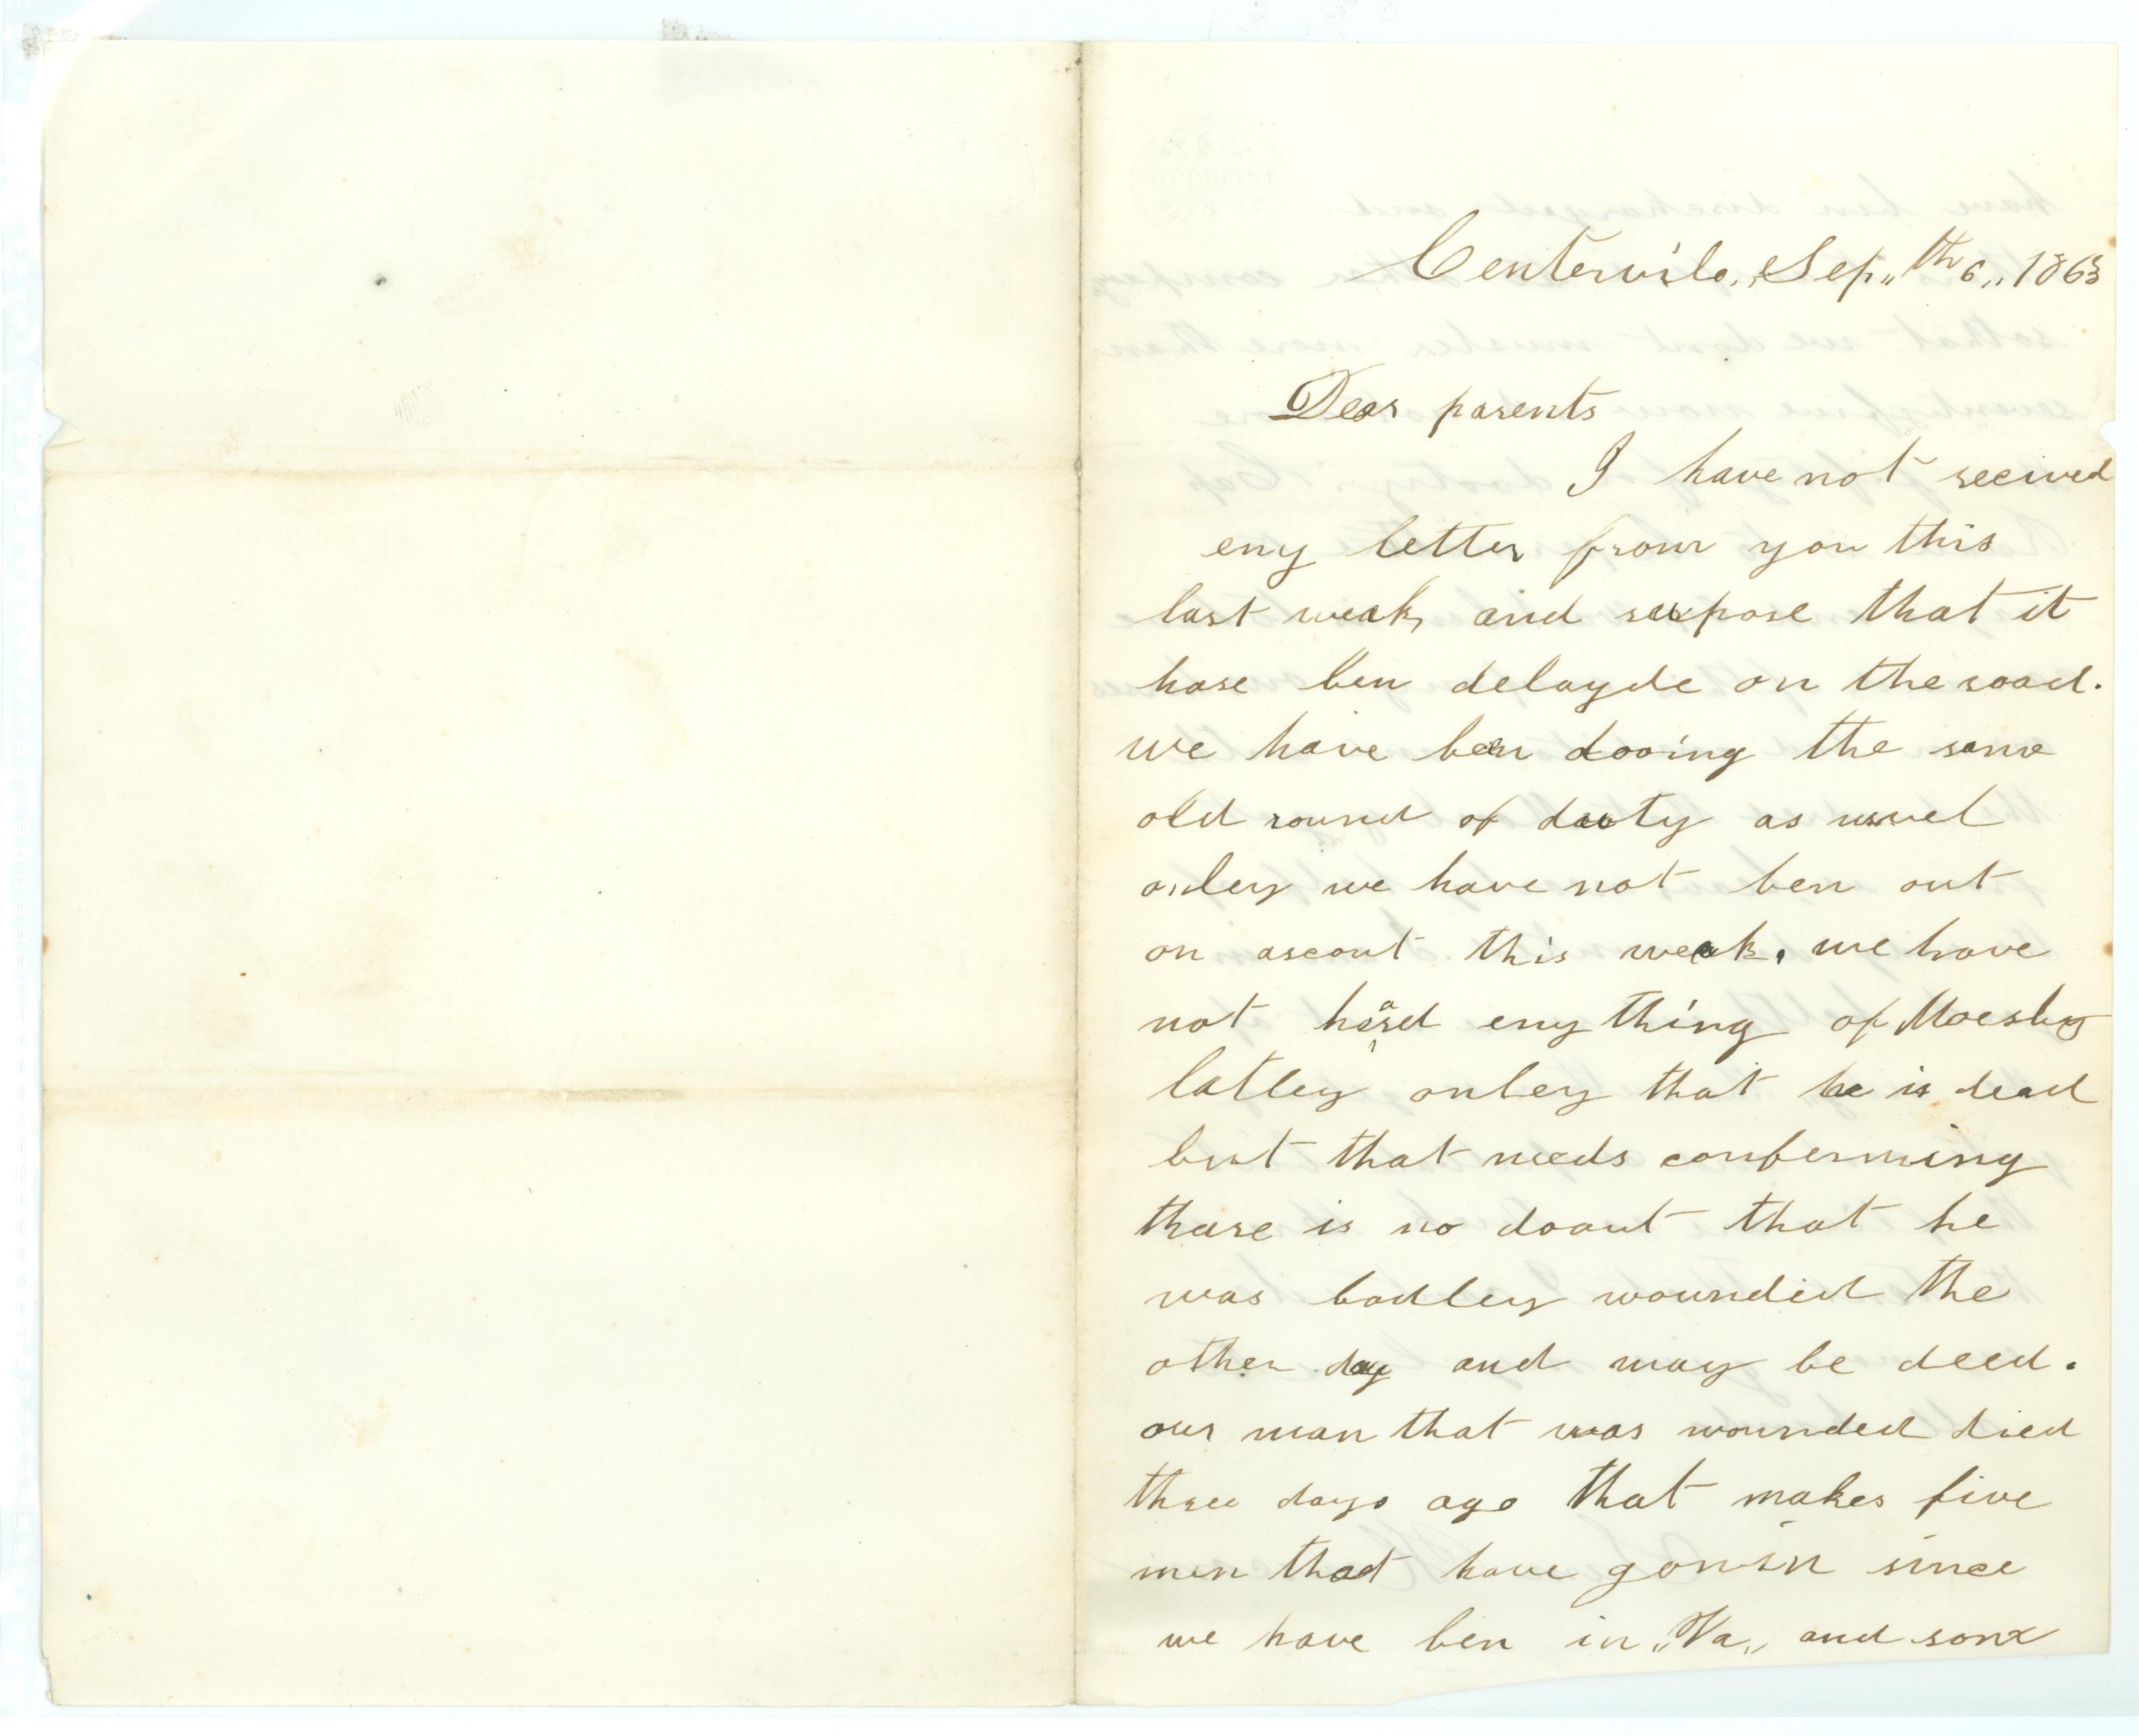 Centervile, Sep,, th 6,, 1863
Dear parents
I have not recived
eny letter from you this
last weak, and supose that it
hase ben delayde on the road.
we have ben dooing the same
old round of duty as usuel
onley we have not ben out
on ascout this weak. we have
not hard eny thing of Moesby
latley onley that he is dead
but that needs conferming
thare is no doout that he
was badley woundid the
other day and may be deed.
our man that was wounded died
three days ago that makes five
men that have gonin since
we have ben in ,,Va,, and some